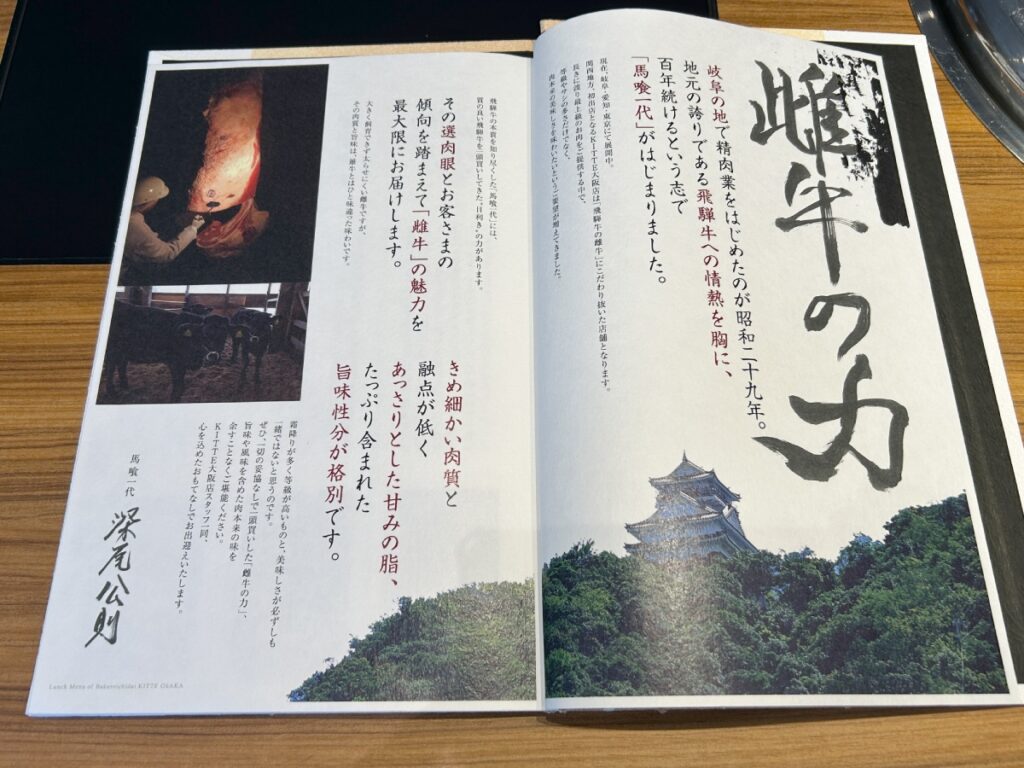 雌牛の力
岐阜の地で精肉業をはじめたのが昭和二十九年。
地元の誇りである飛騨牛への情熱を胸に、
百年続けるという志で
「馬喰一代」がはじまりました。
現在、岐阜・愛知・東京にて展開中。
関西地方、初出店となるKITTE大阪店は「飛騨牛の雌牛」にこだわり抜いた店舗となります。
長きに渡り最上級のお肉をご提供する中で、
等級やサシの多さだけでなく、
肉本来の美味しさを味わいたいというご要望が増えてきました。
飛騨牛の本質を知り尽くした「馬喰一代」には、
質の良い飛騨牛を一頭買いしてきた“目利き”の力があります。
その選肉眼とお客さまの
傾向を踏まえて「雌牛」の魅力を
最大限にお届けします。
大きく飼育できず太らせにくい雌牛ですが、
その肉質と旨味は、雄牛とはひと味違った味わいです。
きめ細かい肉質と
融点が低く
あっさりとした甘みの脂、
たっぷり含まれた
旨味性分が格別です。
霜降りが多く等級が高いものと、美味しさが必ずしも
一緒ではないと思うのです。
ぜひ、一切の妥協なしで一頭買いした「雌牛の力」、
旨味や風味を含めた肉本来の味を
余すことなくご堪能ください。
KITTE大阪店スタッフ一同、
心を込めたおもてなしでお出迎えいたします。
馬喰一代
深尾公則
Lunch Menu of Bakuroichidai KITTE OSAKA